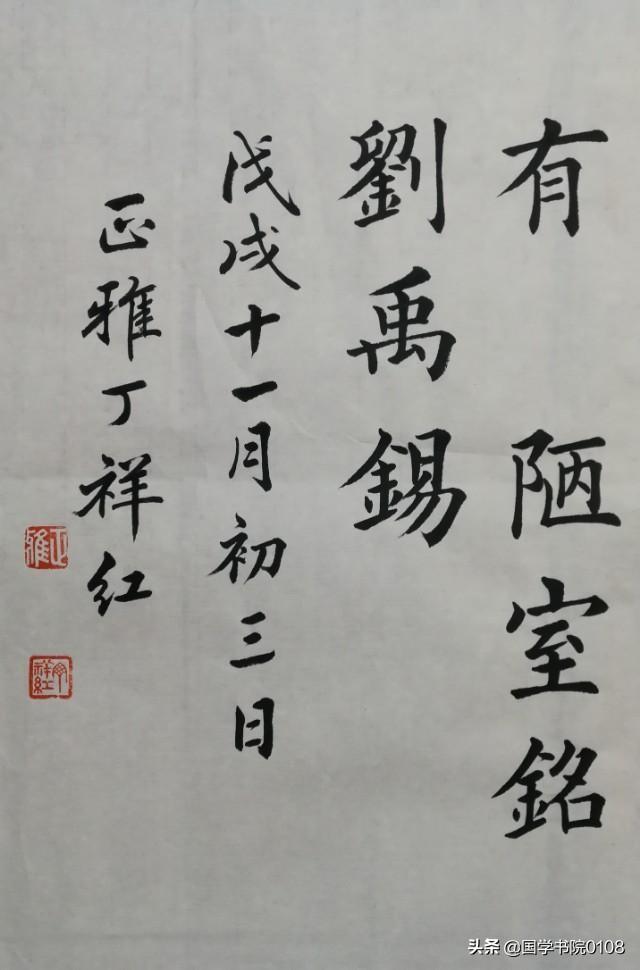 有 陋室銘
劉禹錫
戊戌十一月初三日
正雅丁祥红
正雅
丁祥紅
头条 @国学书院0108